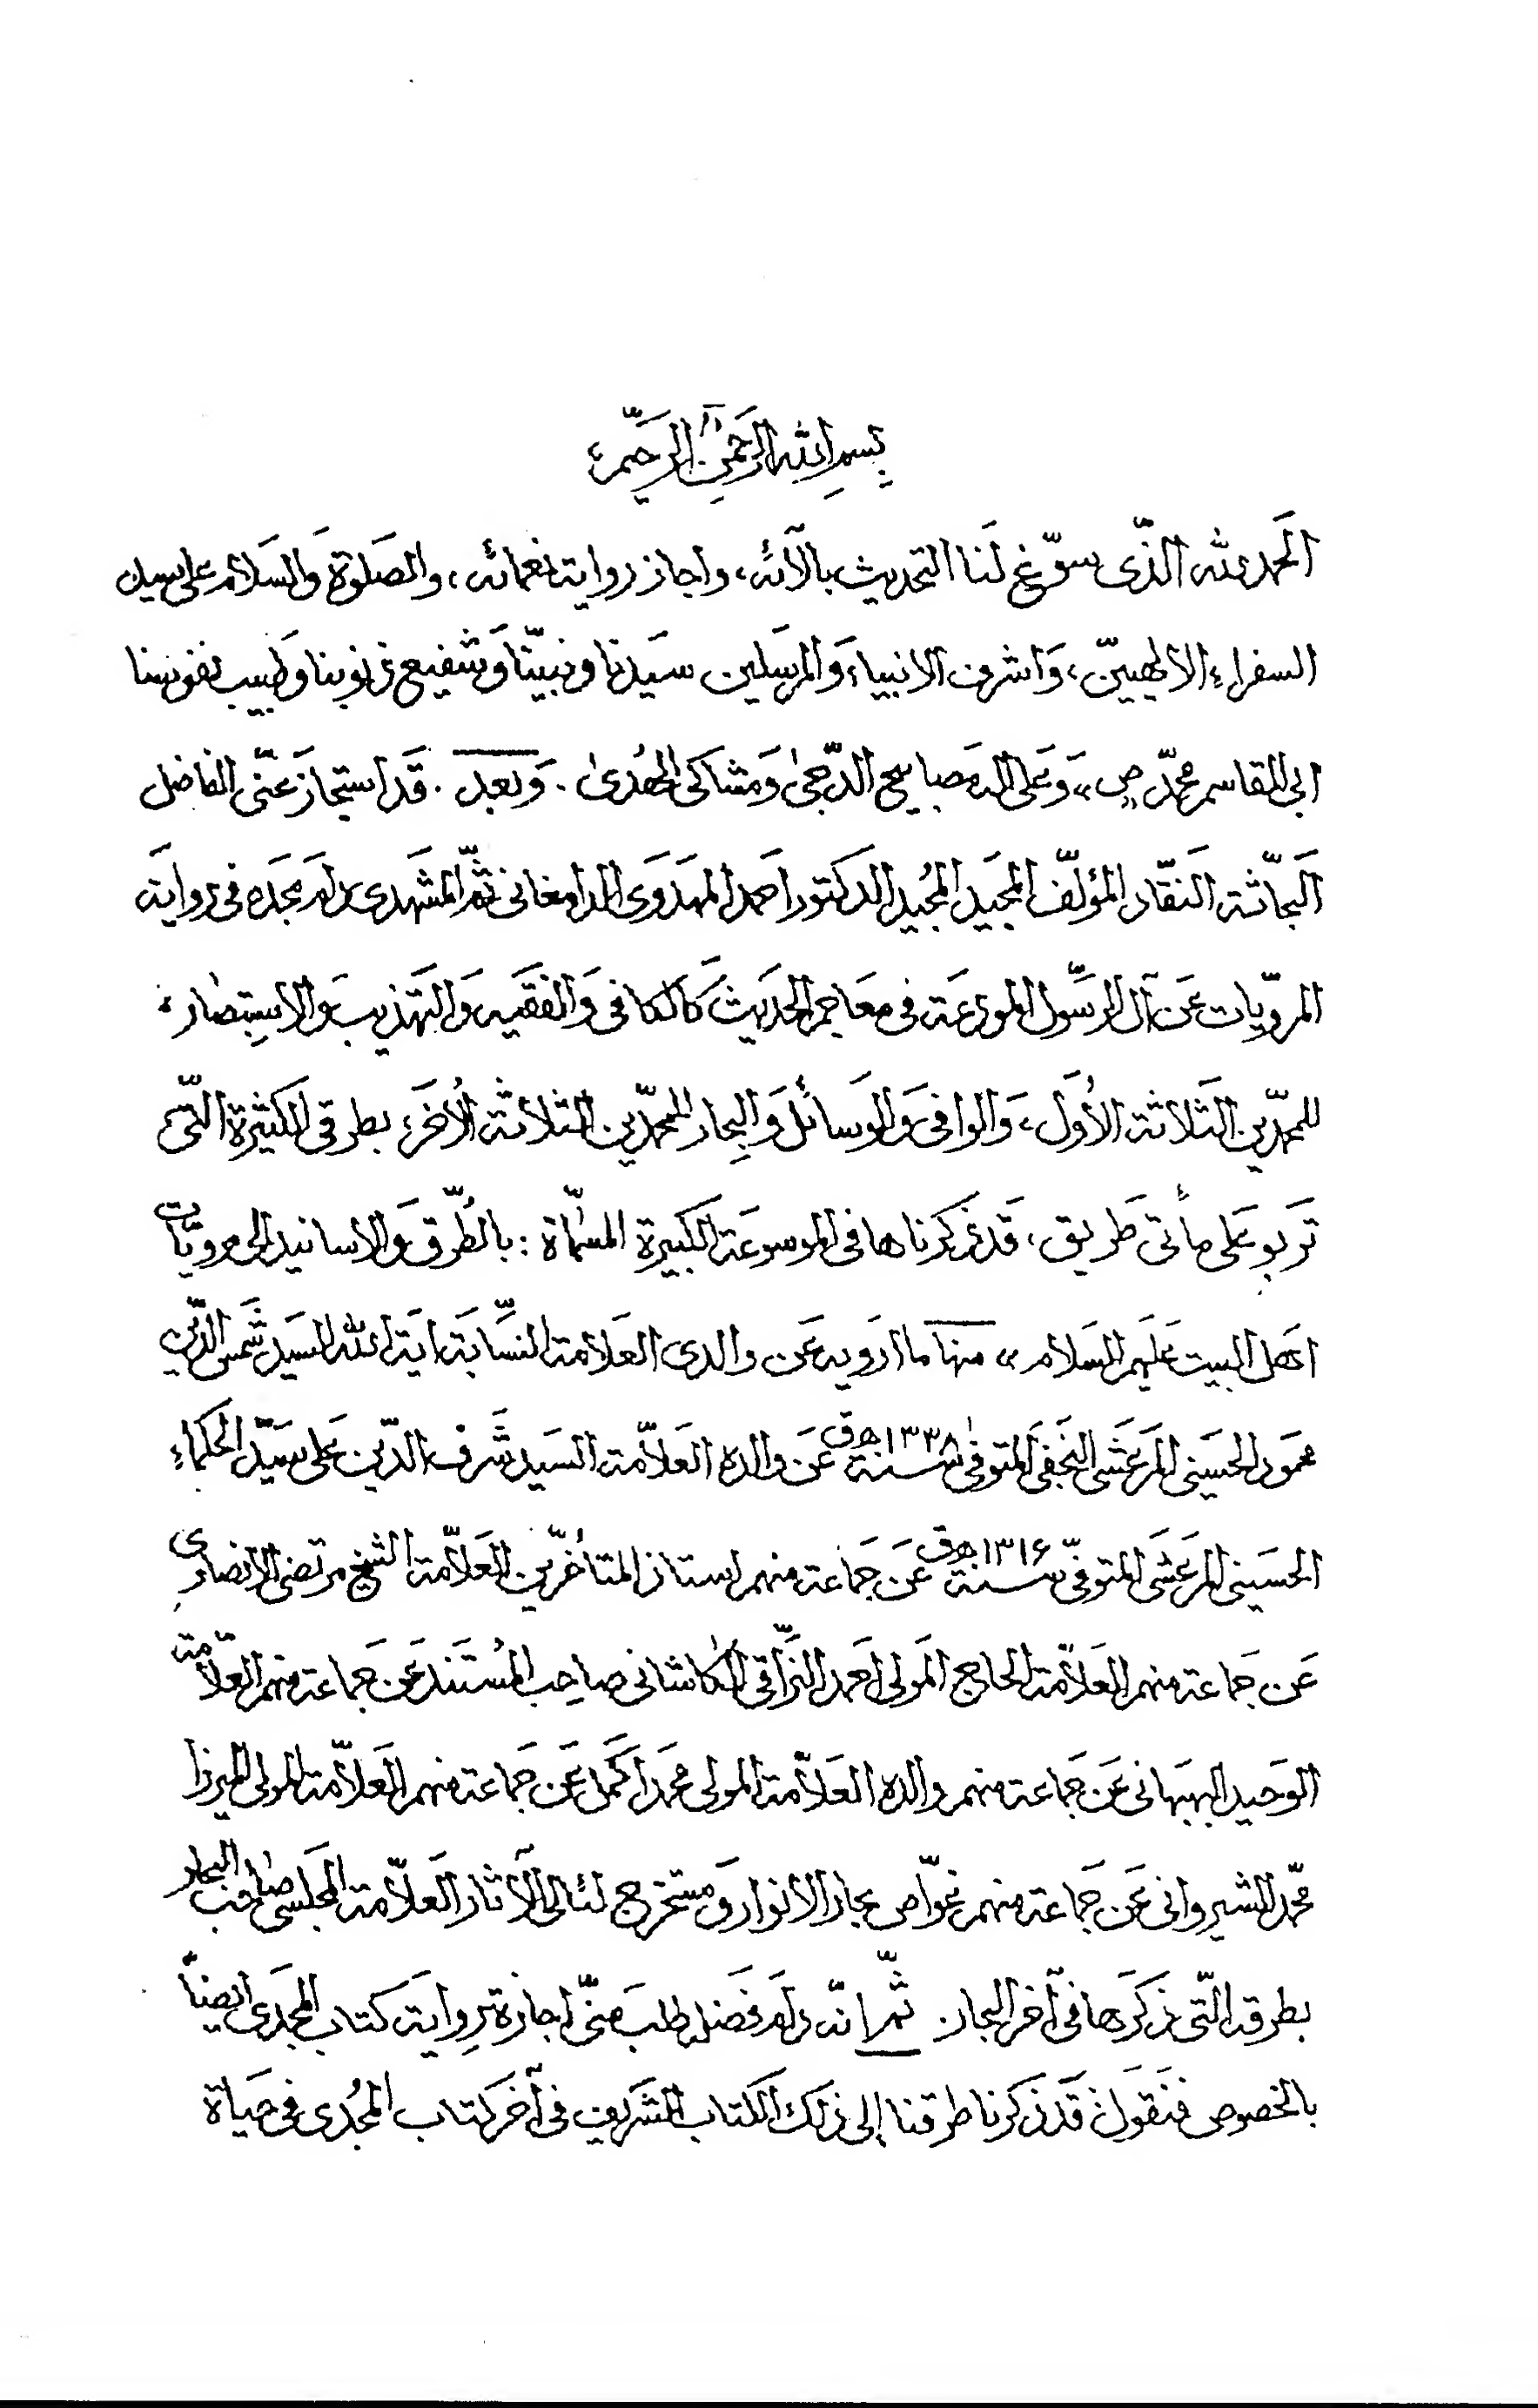 بِسمِ اللهِ الرَّحمنِ الرَّحیمِ
الحَمد لله الذّی سوّغ لَنا التحدیث بآلآئه، واجاز روایة نعمائه، والصَلوة وَالسَلام علی سید
السفراء الالهییّن، وَاشرف الانبیاء وَالمرسَلین سیَدنا ونبیّنا وَشفیع ذنوبنا وطَبیب نفوسنا
ابی القاسم محمّد ص، وَعَلی اله مَصابیح الدّجیٰ وَمشاکی الهُدیٰ. وَبعد. قَد استجازَ عَنّی الفاضل
البَحّاثة النَقّاد المؤلّف المجَید المجُید الدکتور احمَد المهدَوَی الدامغانی ثمّ المشهَدی دام مَجَده فی روایَة
المرّویات عَن آل الرسَّول المودعَة فی معَاجم الحدَیث کَالکافی وَالفقَیه وَالتهَذیب وَالاستِبصار
للمحمّدین الثَلاثة الأوَل، وَالوافی وَالوسَائل وَالبِحار للمحمّدین الثلاثة الأخَر، بطرقی الکثیرة التّی
تَربو عَلی مأتی طَریق، قَد ذکرناها فی الموسوعَة الکبیرة المسمّاة : بالطُرّق وَالاسانید الی مرویّات
اهَل البیت عَلیهَم السَلام» منها ما اروَیه عَن والدی العَلامة النسّابَة ایَة الله السیَد شَمس الدّین
محمَود الحسَینی المَرعَشی النجَفی المتوفیٰ سنة ۱۳۳۸ ه ق عَن والده العَلاّمة السیَد شَرف الدّین عَلی سیَّد الحکماء
الحسَینی المرعَشَی المتوَفیّ سنة ۱۳۱۶ ه ق عَن جَماعة منهم استاذ المتأخرّین العَلاّمة الشیخ مرتضی الانصاری
عَن جَماعة منهم العَلاّمة الحاج المَولی احمَد النرَّاقی الکاشانی صاحِب المُستَند عَن جَماعة منهم العَلاّمة
الوَحید البهبَهانی عَن جَماعة منهم والده العَلاّمة المولی محمَد اکمَل عَن جَماعة منهم العَلاّمة المولی المیرزا
محمّد الشیروانی عَن جَماعة منهم غوّاص بحار الانوار وَمستخرج لئالی الآثار العَلاّمة المجلسَی صاحب البحار
بطرقه التّی ذکَرَها فی آخر البحار. ثمّ انّه دامَ فضَله طلبَ منّی اجازة برِوایَة کتاب المجَدی ایضاً
بالخصوص فنَقوَل قَد ذکرنا طرقنا إلی ذلک الکتاب الشَریف فی آخرَ کتاب المجُدی فی حیَاة